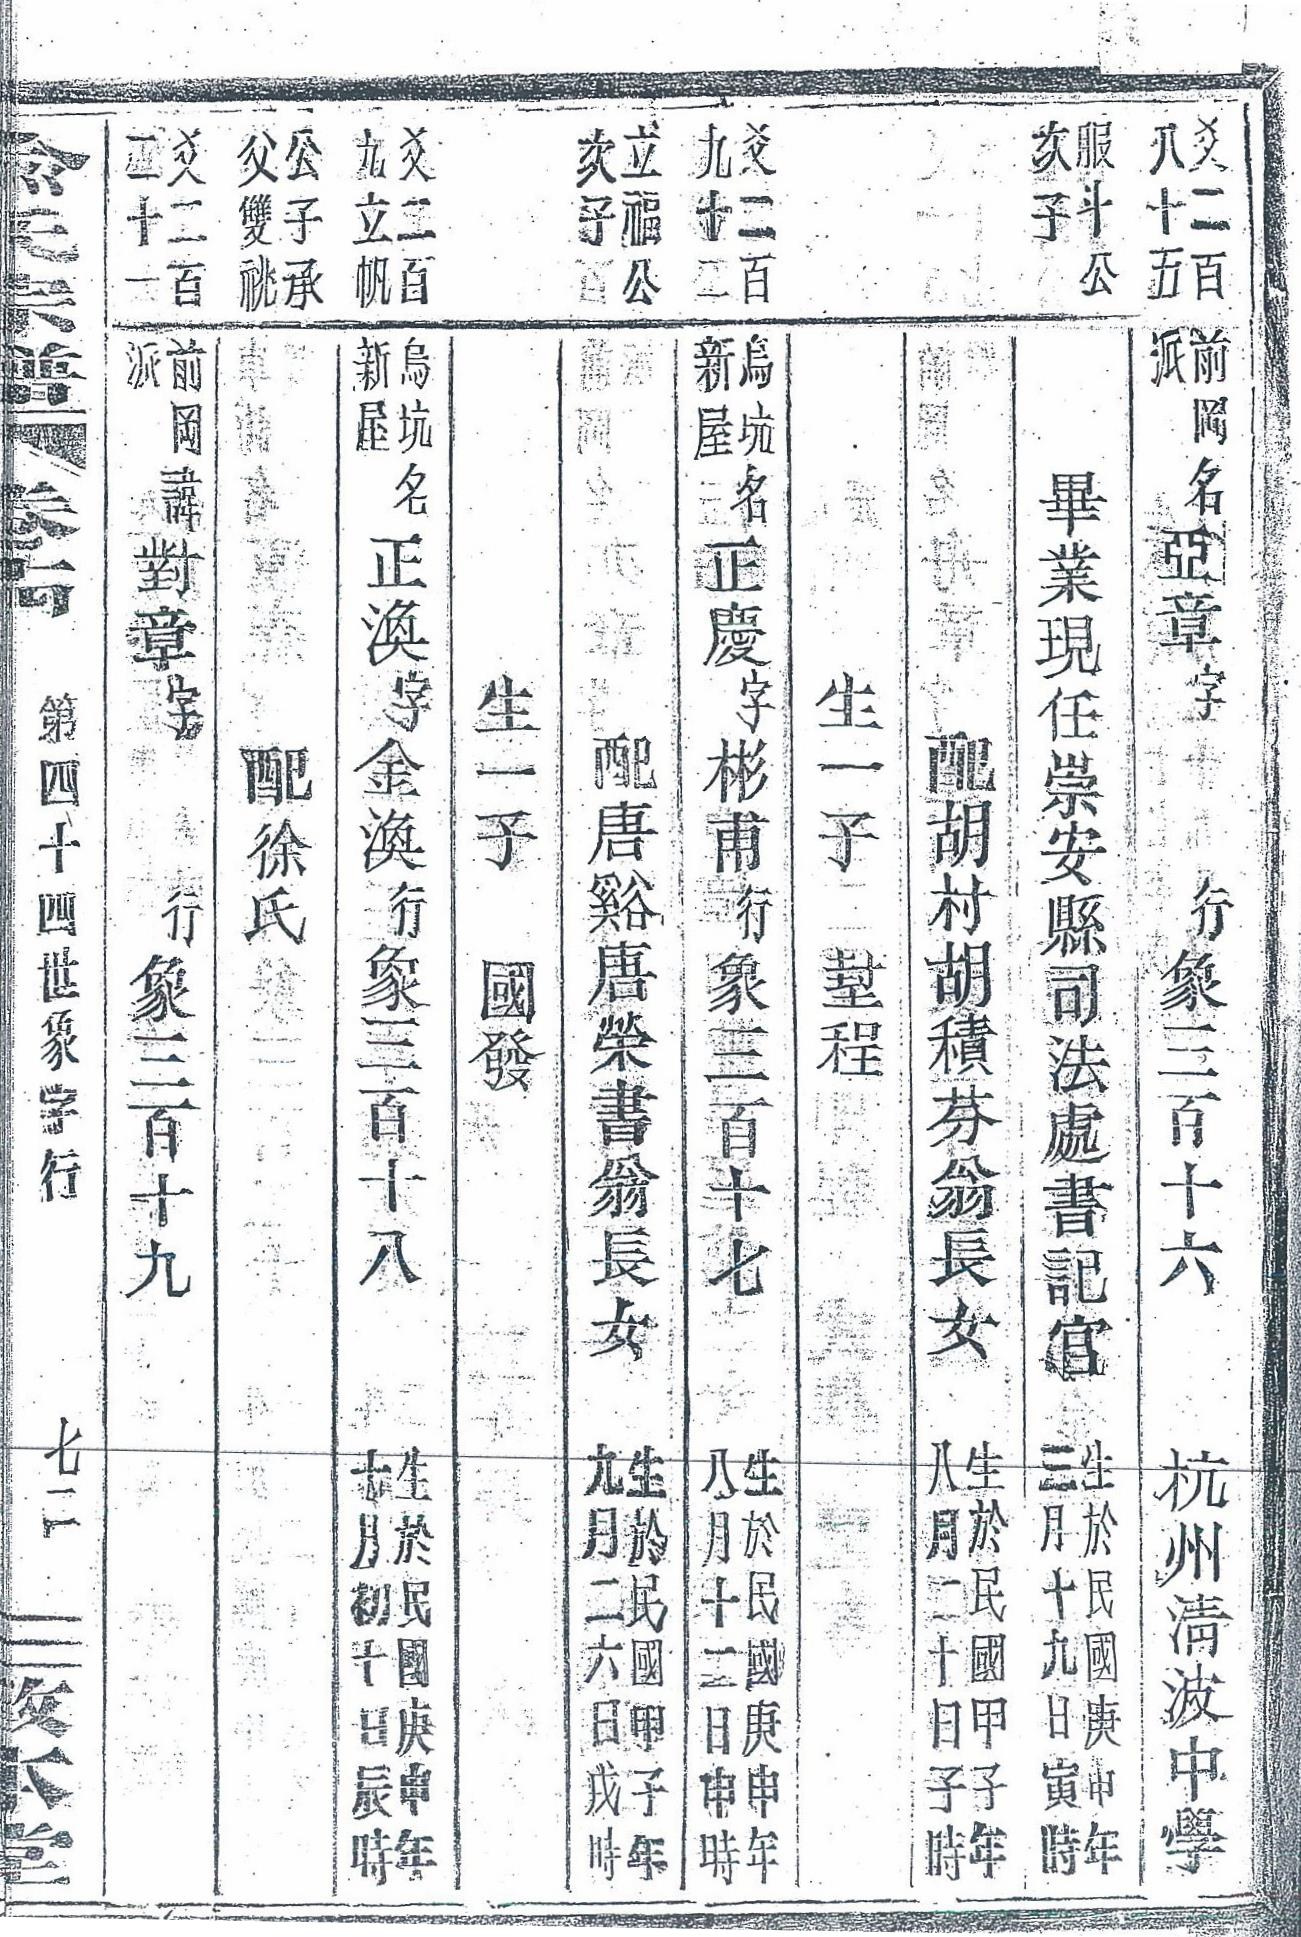 爻二百八十五
前岡派名亞章字 行象三百十六 杭州清波中學
服斗公次子
畢業現任崇安縣司法處書記官 生於民國庚申年三月十九日寅時
配胡村胡積芬翁長女 生於民國甲子年八月二十日子時
生一子 塹程
爻二百九十二
烏坑新屋名正慶字彬甫行象三百十七 生於民國庚申年八月十二日申時
立福公次子
配唐谿唐榮書翁長女 生於民國甲子年九月二六日戌時
生一子 國發
爻二百九立帆
烏坑新屋名正渙字金渙行象三百十八 生於民國庚申年十月初十日辰時
公子承父雙祧
配徐氏
爻二百二十一
前岡派諱對章字 行象三百十九
宗譜 第四十四世象字行 七二 敦本堂